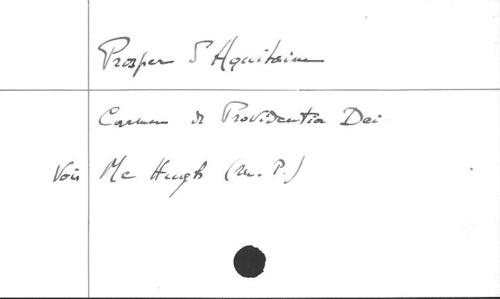 Prosper d'Aquitaine
Carmen de Providentia Dei
Voir Mc Hugh (M. P.)